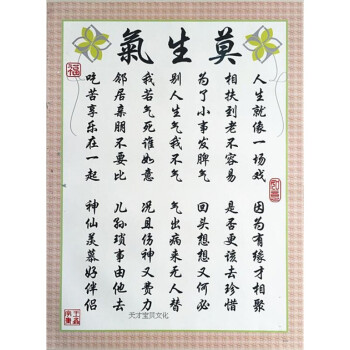 莫生氣
人生就像一场戏 因为有缘才相聚
相扶到老不容易 是否更该去珍惜
为了小事发脾气 回头想想又何必
别人生气我不气 气出病来无人替
我若气死谁如意 况且伤神又费力
邻居亲朋不要比 儿孙琐事由他去
吃苦享乐在一起 神仙羡慕好伴侣
福
天才宝贝文化